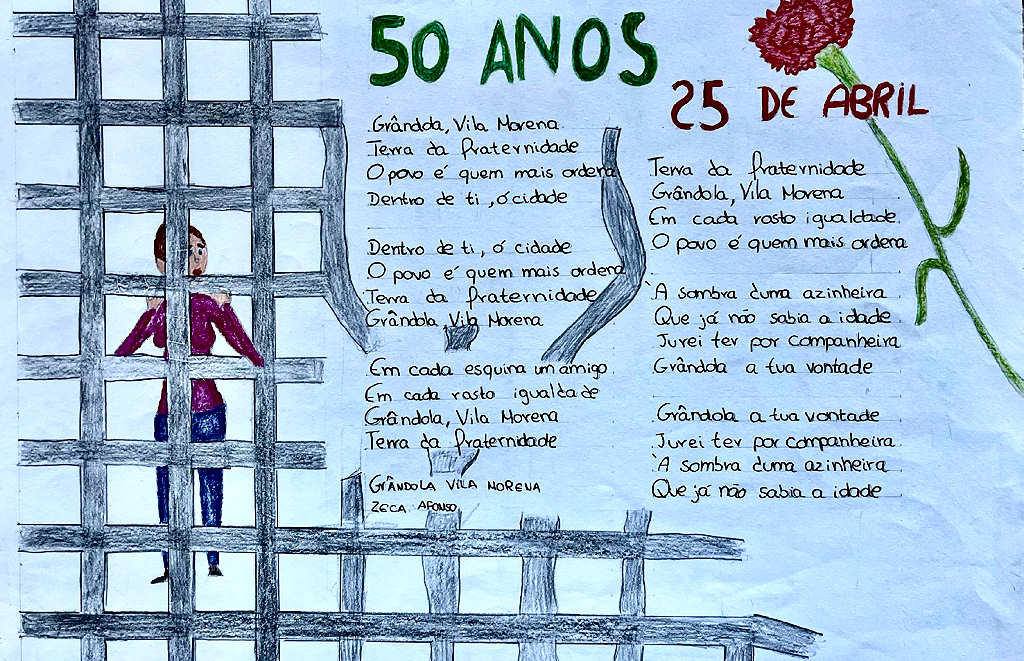 50 ANOS
25 DE ABRIL
Grândola, Vila Morena
Terra da fraternidade
O povo é quem mais ordena
Dentro de ti, ó cidade
Dentro de ti, ó cidade
O povo é quem mais ordena
Terra da fraternidade
Grândola, Vila Morena
Em cada esquina um amigo
Em cada rosto igualdade
Grândola, Vila Morena
Terra da fraternidade
GRÂNDOLA VILA MORENA
ZECA AFONSO
Terra da fraternidade
Grândola, Vila Morena
Em cada rosto igualdade
O povo é quem mais ordena
À sombra duma azinheira
Que já não sabia a idade
Jurei ter por companheira
Grândola a tua vontade
Grândola a tua vontade
Jurei ter por companheira
À sombra duma azinheira
Que já não sabia a idade